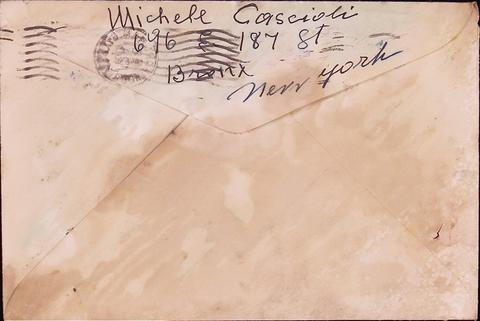 Michele Cascioli
696 E 187 St
Bronx
New York